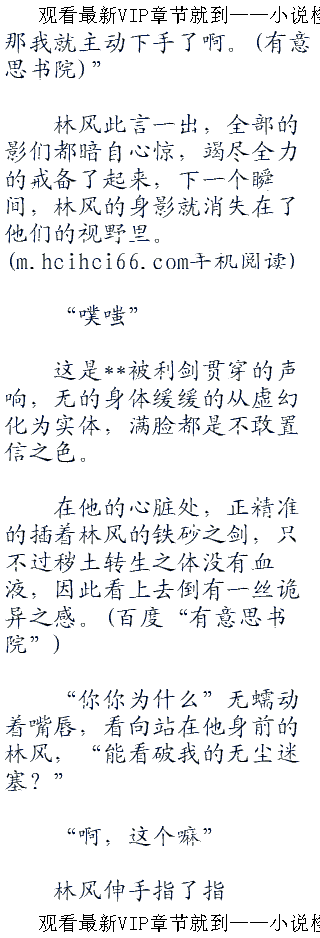 观看最新VIP章节就到——小说检
那我就主动下手了啊。(有意
思书院)”
林风此言一出，全部的
影们都暗自心惊，竭尽全力
的戒备了起来，下一个瞬
间，林风的身影就消失在了
他们的视野里。
(m.hcihci66.com手机阅读)
“噗嗤”
这是**被利剑贯穿的声
响，无的身体缓缓的从虚幻
化为实体，满脸都是不敢置
信之色。
在他的心脏处，正精准
的插着林风的铁砂之剑，只
不过秽土转生之体没有血
液，因此看上去倒有一丝诡
异之感。(百度“有意思书
院”)
“你你为什么”无蠕动
着嘴唇，看向站在他身前的
林风，“能看破我的无尘迷
塞？”
“啊，这个嘛”
林风伸手指了指
观看最新VIP章节就到——小说检